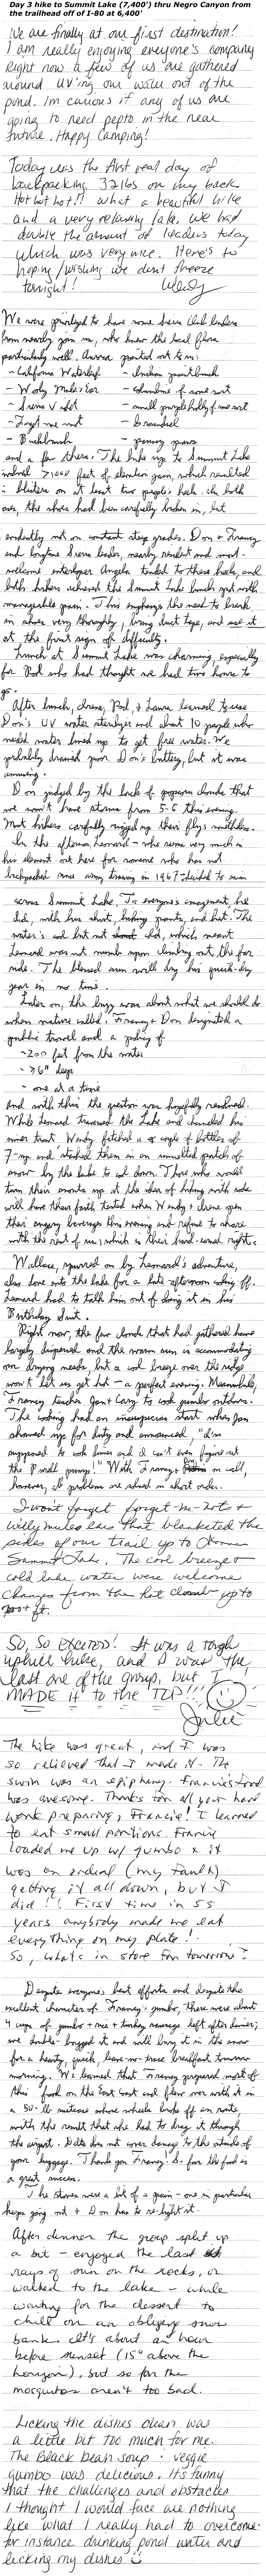 Day 3 hike to Summit Lake (7,400') thru Negro Canyon from
the trailhead off of I-80 at 6,400'
We are finally at our first destination!
I am really enjoying everyone's company
Right now a few of us are gathered
around UV'ing our water out of the
pond. I'm curious if any of us are
going to need pepto in the near
future. Happy Camping!
Today was the first real day of
backpacking. 32 lbs on my back
Hot hot hot!! What a beautiful hike
and a very relaxing lake. We had
double the amount of leaders today
which was very nice. Here's to
hoping/wishing we dont freeze
tonight! Wendy
We were privileged to have some Sierra Club leaders
from nearby join us, who knew the local flora
particularly well. pointed out to us:
- California Waterleaf - Indian paintbrush
- Wooly Mule's Ear - columbine of some sort
- Sierra Violet - small purple holly of some sort
- Forget me not
- Bitterbrush
and a few others. The hike up to Summit Lake
involved >1000 feet of elevation gain, which resulted
in blisters on at least two people's heels. In both
cases, the shoes had been carefully broken in, but
evidently not on constant steep grades. Don & Francy
and longtime Sierra leader, nearby resident and most-
welcome interloper Angela tended to these heels, and
both hikers achieved the Summit Lake lunch spot with
manageable pain. This emphasizes the need to break
in shoes very thoroughly, bring duct tape, and use it
at the first sign of difficulty.
Lunch at Summit Lake was charming, especially
for Pod who had thought we had two hours to
go.
After lunch, Irene, Pod, & Laura learned to use
Don's UV water sterilizer and about 10 people who
needed water lined up to get free water. We
probably drained poor Don's battery, but it was
amusing.
Don judged by the lack of popcorn clouds that
we won't have storms from 5-6 this evening.
Most hikers carefully rigged up their flys nonetheless.
In the afternoon Leonard - who seems very much in
his element out here for someone who has not
backpacked since army training in 1967 - decided to swim
across Summit Lake. To everyone's amazement he
did, with his shirt, hiking pants, and hat. The
water's cool but not cold, which meant
Leonard was not numb upon climbing out the far
side. The blessed sun will dry his quick-dry
gear in no time.
Later on, the buzz was about what we should do
when nature called. Francy & Don designated a
public trowel and a policy of
- 200 feet from the water
- >6" deep
- one at a time
And with this the question was hopefully resolved.
While Leonard traversed the Lake and channeled his
inner trout, Wendy fetched a couple of bottles of
7-up and stashed them in an unmelted patch of
snow by the lake to cool down. Those who would
turn their snouts up at the idea of hiking with soda
will have their faith tested when Wendy & Irene open
their sugary beverage this evening and refuse to share
with the rest of us; which is their hard-earned right.
Wallace, spurred on by Leonard's adventure,
also dove into the lake for a late-afternoon cooling off.
Leonard had to talk him out of doing it in his
Birthday Suit.
Right now, the few clouds that had gathered have
largely dispersed and the warm sun is accommodating
our drying needs, but a cool breeze over the ridge
won't let us get hot - a perfect evening. Meanwhile,
Francy teaches Jan & Cary to cook gumbo outdoors.
The cooking had an inauspicious start when Jan
showed up for duty and announced, "I'm
supposed to cook dinner and I can't even figure out
the Purell pump!" With Francy & Don on call,
however, all problems are solved in short order.
I won't forget forget-me-nots &
wily mules ears that blanketed the
sides of our trail up to
Summit Lake. The cool breeze &
cold lake water were welcome
changes from the hot climb up to
it.
So, so EXCITED! It was a tough
uphill hike, and I was the
last one of the group, but I
MADE it to the TOP!!!
Julie
The hike was great, and I was
so relieved that I made it. The
swim was an epiphany. Francie's food
was awesome. Thanks for all your hard
work preparing, Francie! I learned
to eat small portions. Francie
loaded me up w/ gumbo & it
was an ordeal (my fault)
getting it all down, but I
did!!! First time in 55
years anybody made me eat
everything on my plate!
So, what's in store for tomorrow?
Despite everyone's best efforts and despite the
excellent character of Francy's gumbo, there were about
4 cups of gumbo + rice + turkey sausage left after dinner;
we double-bagged it and will bury it in the snow
for a hearty, quick, leave-no-trace breakfast tomorrow
morning. We learned that Francy prepared most of
this food on the East Coast and flew over with it in
a 50-lb suitcase whose wheels broke off en route,
with the result that she had to drag it through
the airport. Delta does not cover damage to the outside of
your luggage. Thank you Francy! for the food is
a great success.
The stoves were a bit of a pain - one in particular
keeps going out & Don has to re-light it.
After dinner the group split up
a bit - enjoyed the last
rays of sun on the rocks, or
walked to the lake - while
waiting for the dessert to
chill on an obliging snow
bank. It's about an hour
before sunset (15° above the
horizon), but so far the
mosquitos aren't too bad.
Licking the dishes clean was
a little bit too much for me.
The Black bean soup & veggie
gumbo was delicious. It's funny
that the challenges and obstacles
I thought I would face are nothing
like what I really had to overcome.
for instance drinking pond water and
licking my dishes :)